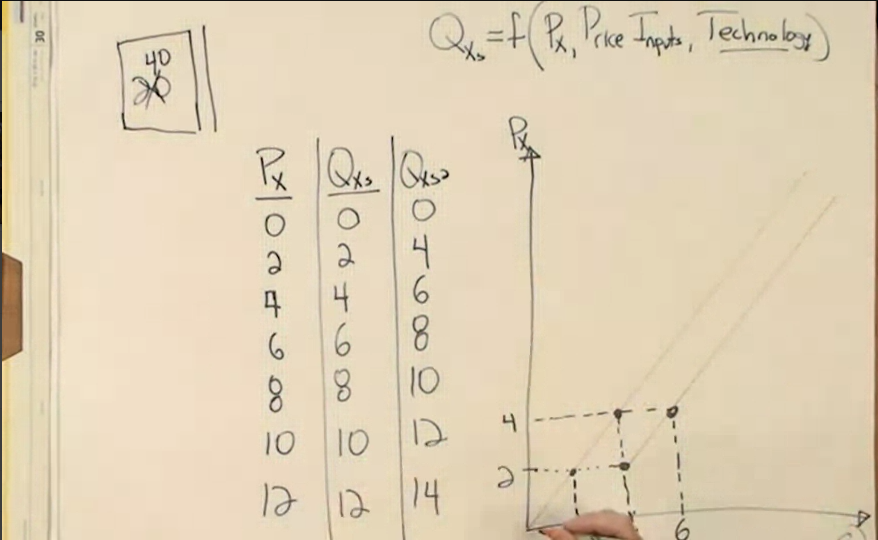 Qxs = f(Px, Price Inputs, Technology)
40
20
Px Qxs Qxs2
0 0 0
2 2 4
4 4 6
6 6 8
8 8 10
10 10 12
12 12 14
Px
4
2
6